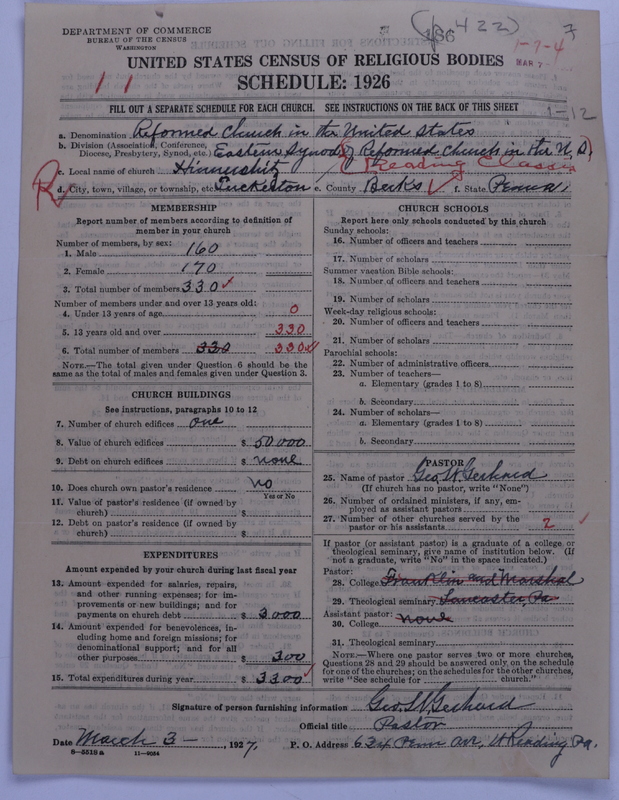 DEPARTMENT OF COMMERCE
BUREAU OF THE CENSUS
WASHINGTON
186
(p. 422)
7
1-7-4
MAR 7
1 1
UNITED STATES CENSUS OF RELIGIOUS BODIES
SCHEDULE: 1926
FILL OUT A SEPARATE SCHEDULE FOR EACH CHURCH. SEE INSTRUCTIONS ON THE BACK OF THIS SHEET
1-12
a. Denomination Reformed Church in the United States
b. Division (Association, Conference, Diocese, Presbytery, Synod, etc.) Eastern Synod (Reformed Church in the U.S.)
c. Local name of church Hinnershitz (Reading Classis
d. City, town, village, or township, etc. Tuckerton e. County Berks f. State Penna.
MEMBERSHIP
Report number of members according to definition of
member in your church
Number of members, by sex:
1. Male 160
2. Female 170
3. Total number of members 330
Number of members under and over 13 years old:
4. Under 13 years of age 0
5. 13 years old and over 330
6. Total number of members 330 330
NOTE.—The total given under Question 6 should be
same as the total of males and females given under Question 3.
CHURCH BUILDINGS
See instructions, paragraphs 10 to 12
7. Number of church edifices one
8. Value of church edifices $ 50000
9. Debt on church edifices $ none
10. Does church own pastor's residence No
Yes or No
11. Value of pastor's residence (if owned by
church) $
12. Debt on pastor's residence (if owned by
church) $
EXPENDITURES
Amount expended by your church during last fiscal year
13. Amount expended for salaries, repairs,
and other running expenses; for im-
provements or new buildings; and for
payments on church debt $ 3000
14. Amount expended for benevolences, in-
cluding home and foreign missions; for
denominational support; and for all
other purposes $ 300
15. Total expenditures during year $ 3300
CHURCH SCHOOLS
Report here only schools conducted by this church
Sunday schools:
16. Number of officers and teachers
17. Number of scholars
Summer vacation Bible schools:
18. Number of officers and teachers
19. Number of scholars
Week-day religious schools:
20. Number of officers and teachers
21. Number of scholars
Parochial schools:
22. Number of administrative officers
23. Number of teachers—
a. Elementary (grades 1 to 8)
b. Secondary
24. Number of scholars—
a. Elementary (grades 1 to 8)
b. Secondary
PASTOR
25. Name of pastor Geo. W. Gerhard
(If church has no pastor, write "None")
26. Number of ordained ministers, if any, em-
ployed as assistant pastors
27. Number of other churches served by the
pastor or his assistants 2
If pastor (or assistant pastor) is a graduate of a college or
theological seminary, give name of institution below. (If
not a graduate, write "No" in the space indicated.)
Pastor:
28. College Franklin and Marshal
29. Theological seminary Lancaster, Pa
Assistant pastor:
30. College none
31. Theological seminary
NOTE.—Where one pastor serves two or more churches,
Questions 28 and 29 should be answered only on the schedule
for one of the churches; on the schedules for the other churches,
write "See schedule for church."
Signature of person furnishing information Geo. W. Gerhard
Official title Pastor
Date March 3 —, 1927. P. O. Address 634 Penn Av, W Reading Pa.
8—5518 a 11—9034